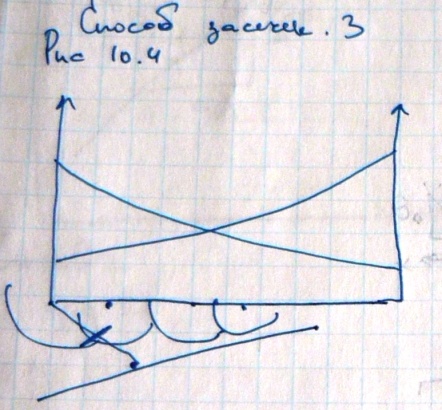 Способ засечек. 3
Рис 10.4